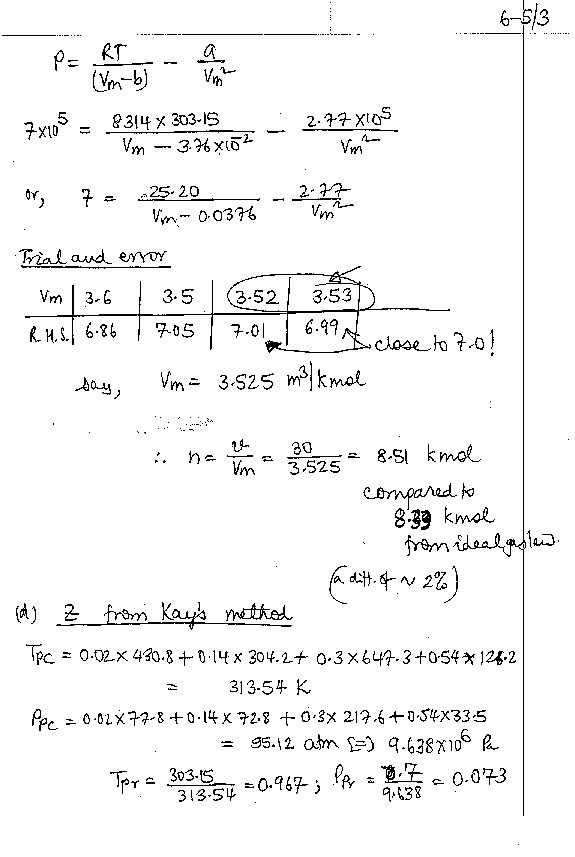 6-5/3
P = RT/(Vm-b) - a/Vm²
7×10⁵ = 8314 × 303.15/(Vm - 3.76×10⁻²) - 2.77×10⁵/Vm²
or, 7 = 25.20/(Vm - 0.0376) - 2.77/Vm²
Trial and error
Vm | 3.6 | 3.5 | 3.52 | 3.53
R.H.S. | 6.86 | 7.05 | 7.01 | 6.99
close to 7.0!
say, Vm = 3.525 m³/kmol
∴ n = v/Vm = 30/3.525 = 8.51 kmol
compared to
8.39 kmol
from ideal gas law.
(a diff. of ~ 2%)
(d) Z from Kay's method
Tpc = 0.02 × 430.8 + 0.14 × 304.2 + 0.3 × 647.3 + 0.54 × 126.2
= 313.54 K
Ppc = 0.02×77.8 + 0.14 × 72.8 + 0.3× 217.6 + 0.54×33.5
= 95.12 atm (=) 9.638×10⁶ Pa
Tpr = 303.15/313.54 = 0.967 ; Ppr = 0.7/9.638 = 0.073